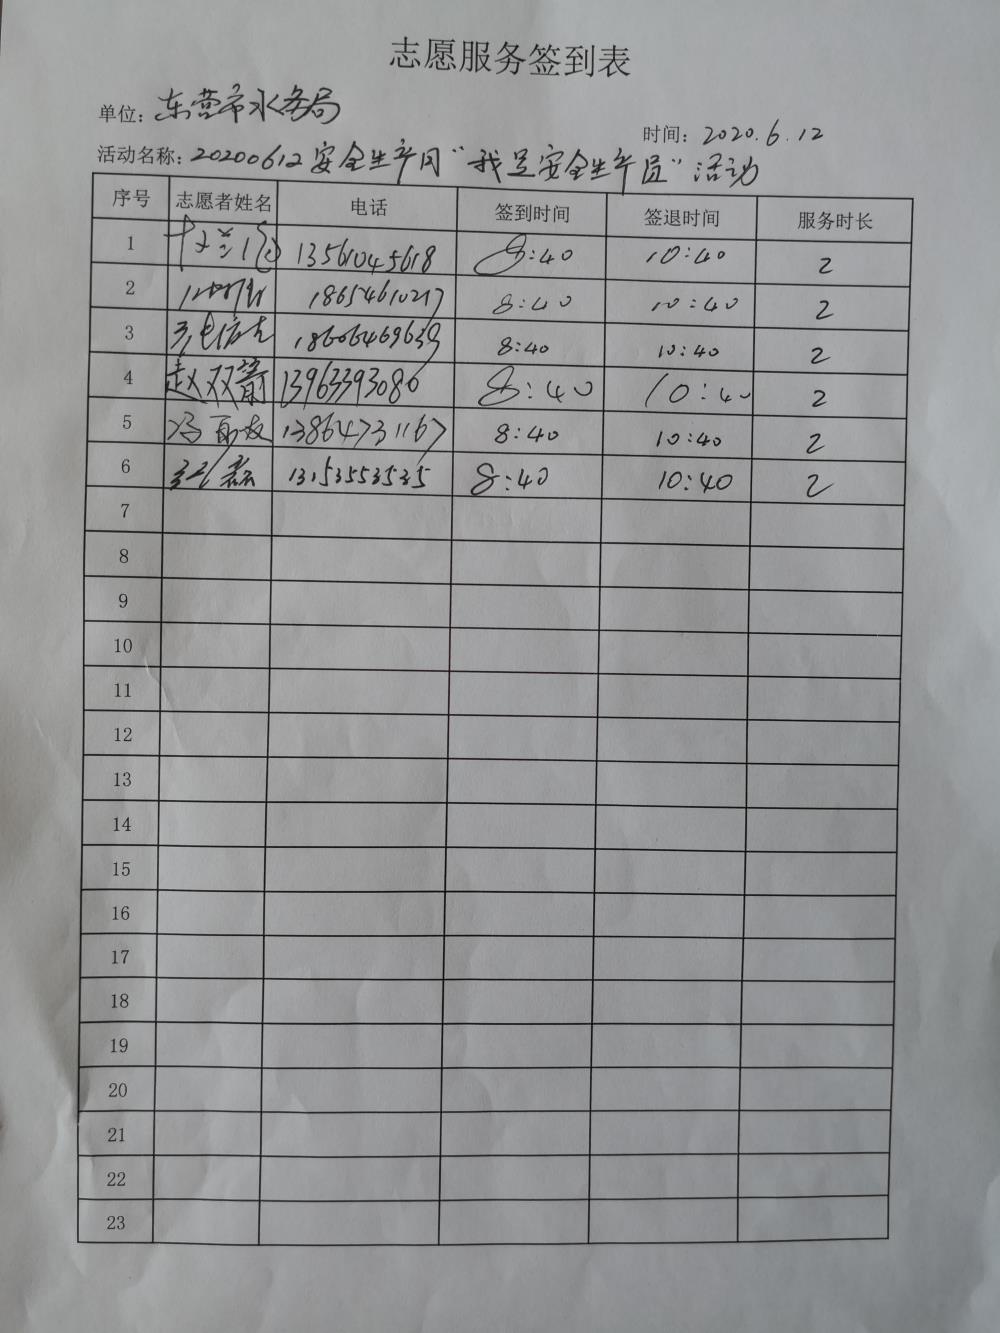 志愿服务签到表
单位：东营市水务局
时间：2020.6.12
活动名称：20200612安全生产月“我是安全生产员”活动
序号 志愿者姓名 电话 签到时间 签退时间 服务时长
1 13561045618 8:40 10:40 2
2 18654610217 8:40 10:40 2
3 18606469639 8:40 10:40 2
4 赵双箭 13963393080 8:40 10:40 2
5 13864731167 8:40 10:40 2
6 13153553535 8:40 10:40 2
7
8
9
10
11
12
13
14
15
16
17
18
19
20
21
22
23